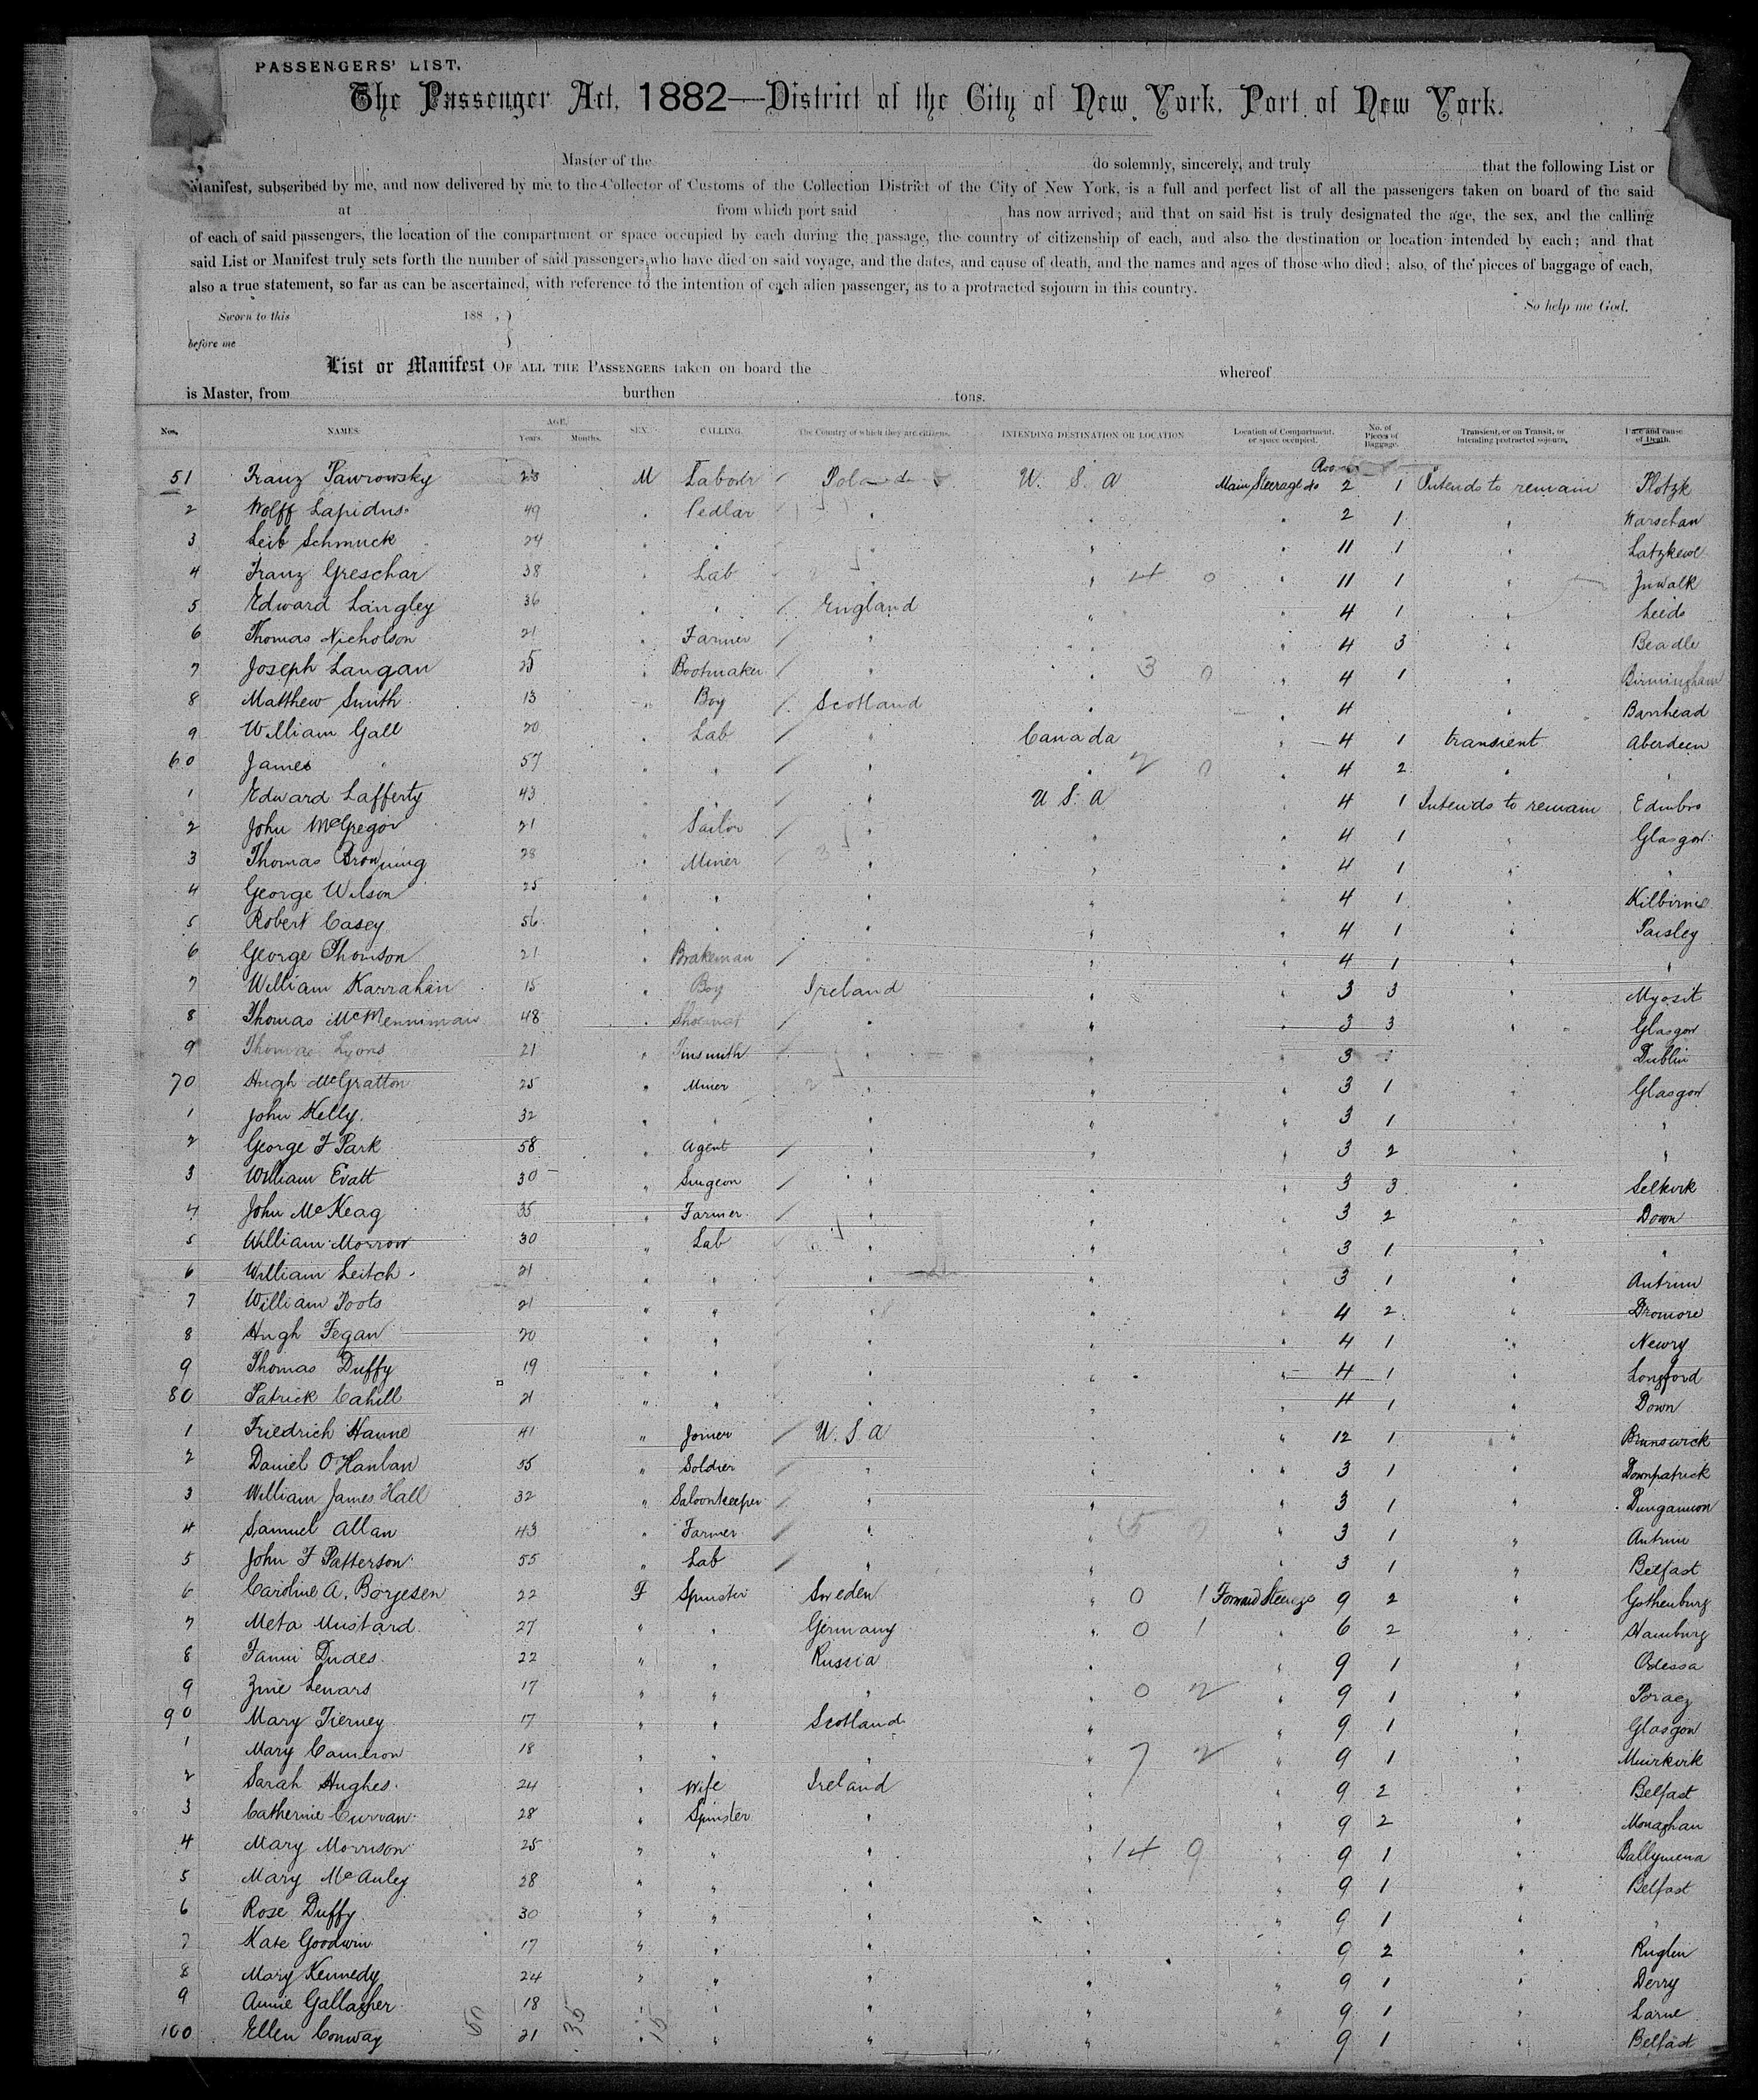 PASSENGERS' LIST.
The Passenger Act, 1882—District of the City of New York, Port of New York.
Master of the do solemnly, sincerely, and truly that the following List or
Manifest, subscribed by me, and now delivered by me to the Collector of Customs of the Collection District of the City of New York, is a full and perfect list of all the passengers taken on board of the said
at from which port said has now arrived; and that on said list is truly designated the age, the sex, and the calling
of each of said passengers, the location of the compartment or space occupied by each during the passage, the country of citizenship of each, and also the destination or location intended by each; and that
said List or Manifest truly sets forth the number of said passengers who have died on said voyage, and the dates, and cause of death, and the names and ages of those who died; also, of the pieces of baggage of each,
also a true statement, so far as can be ascertained, with reference to the intention of each alien passenger, as to a protracted sojourn in this country.
So help me God.
Sworn to this 188 , }
before me }
List or Manifest OF ALL THE PASSENGERS taken on board the whereof
is Master, from burthen tons.
Nos. NAMES. AGE. Years. Months. SEX. CALLING. The Country of which they are citizens. INTENDING DESTINATION OR LOCATION Location of Compartment, or space occupied. No. of Pieces of Baggage. Transient, or on Transit, or intending protracted sojourn. Date and cause of Death.
51 Franz Pawrowsky 23 M Laborer Poland U. S. A Main Steerage 2 1 Intends to remain Plotzk
2 Wolff Lapidus 49 " Pedlar " " " 2 1 " Warschau
3 Leib Schmuck 24 " " " " " 11 1 " Latzkewe
4 Franz Greschar 38 " Lab " " 4 0 " 11 1 " Zuwalk
5 Edward Langley 36 " " England " " 4 1 " Leeds
6 Thomas Nicholson 21 " Farmer " " " 4 3 " Beadle
7 Joseph Langan 25 " Bootmaker " " 3 0 " 4 1 " Birmingham
8 Matthew Smith 13 " Boy Scotland " " 4 " Barrhead
9 William Gall 20 " Lab " Canada " 4 1 transient Aberdeen
60 James " 57 " " " " 2 0 " 4 2 " "
1 Edward Lafferty 43 " " " U S. A " 4 1 Intends to remain Edinbro
2 John McGregor 21 " Sailor " " " 4 1 " Glasgow
3 Thomas Browning 28 " Miner " " " 4 1 " "
4 George Wilson 25 " " " " " 4 1 " Kilbirnie
5 Robert Casey 56 " " " " " 4 1 " Paisley
6 George Thomson 21 " Brakeman " " " 4 1 " "
7 William Karrahan 15 " Boy Ireland " " 3 3 " Myosit
8 Thomas McMenniman 48 " " " " 3 3 " Glasgow
9 Thomas Lyons 21 " Tinsmith " " " 3 " Dublin
70 Hugh McGratton 25 " Miner " " " 3 1 " Glasgow
1 John Kelly 32 " " " " " 3 1 " "
2 George F Park 58 " Agent " " " 3 2 " "
3 William Evatt 30 " Surgeon " " " 3 3 " Selkirk
4 John McKeag 35 " Farmer " " " 3 2 " Down
5 William Morrow 30 " Lab " " " 3 1 " "
6 William Leitch 21 " " " " " 3 1 " Antrim
7 William Poots 21 " " " " " 4 2 " Dromore
8 Hugh Fegan 20 " " " " " 4 1 " Newry
9 Thomas Duffy 19 " " " " " 4 1 " Longford
80 Patrick Cahill 21 " " " " " 4 1 " Down
1 Friedrich Hanne 41 " Joiner U. S. A " " 12 1 " Brunswick
2 Daniel O'Hanlan 55 " Soldier " " " 3 1 " Downpatrick
3 William James Hall 32 " Saloonkeeper " " " 3 1 " Dungannon
4 Samuel Allan 43 " Farmer " " 5 0 " 3 1 " Antrim
5 John F Patterson 55 " Lab " " " 3 1 " Belfast
6 Caroline A. Borjesen 22 F Spinster Sweden " 0 1 Forward Steerage 9 2 " Gothenburg
7 Meta Mustard 27 " " Germany " 0 1 " 6 2 " Hamburg
8 Fanni Dudes 22 " " Russia " " 9 1 " Odessa
9 Zine Lenars 17 " " " " 0 2 " 9 1 " Poracz
90 Mary Tierney 17 " " Scotland " " 9 1 " Glasgow
1 Mary Cameron 18 " " " " 7 2 " 9 1 " Muirkirk
2 Sarah Hughes 24 " Wife Ireland " " 9 2 " Belfast
3 Catherine Curran 28 " Spinster " " " 9 2 " Monaghan
4 Mary Morrison 25 " " " " 14 9 " 9 1 " Ballymena
5 Mary McAuley 28 " " " " " 9 1 " Belfast
6 Rose Duffy 30 " " " " " 9 1 " "
7 Kate Goodwin 17 " " " " " 9 2 " Ruglen
8 Mary Kennedy 24 " " " " " 9 1 " Derry
9 Annie Gallagher 18 " " " " " 9 1 " Larne
100 Ellen Conway 21 " " " " " 9 1 " Belfast
50 35 15